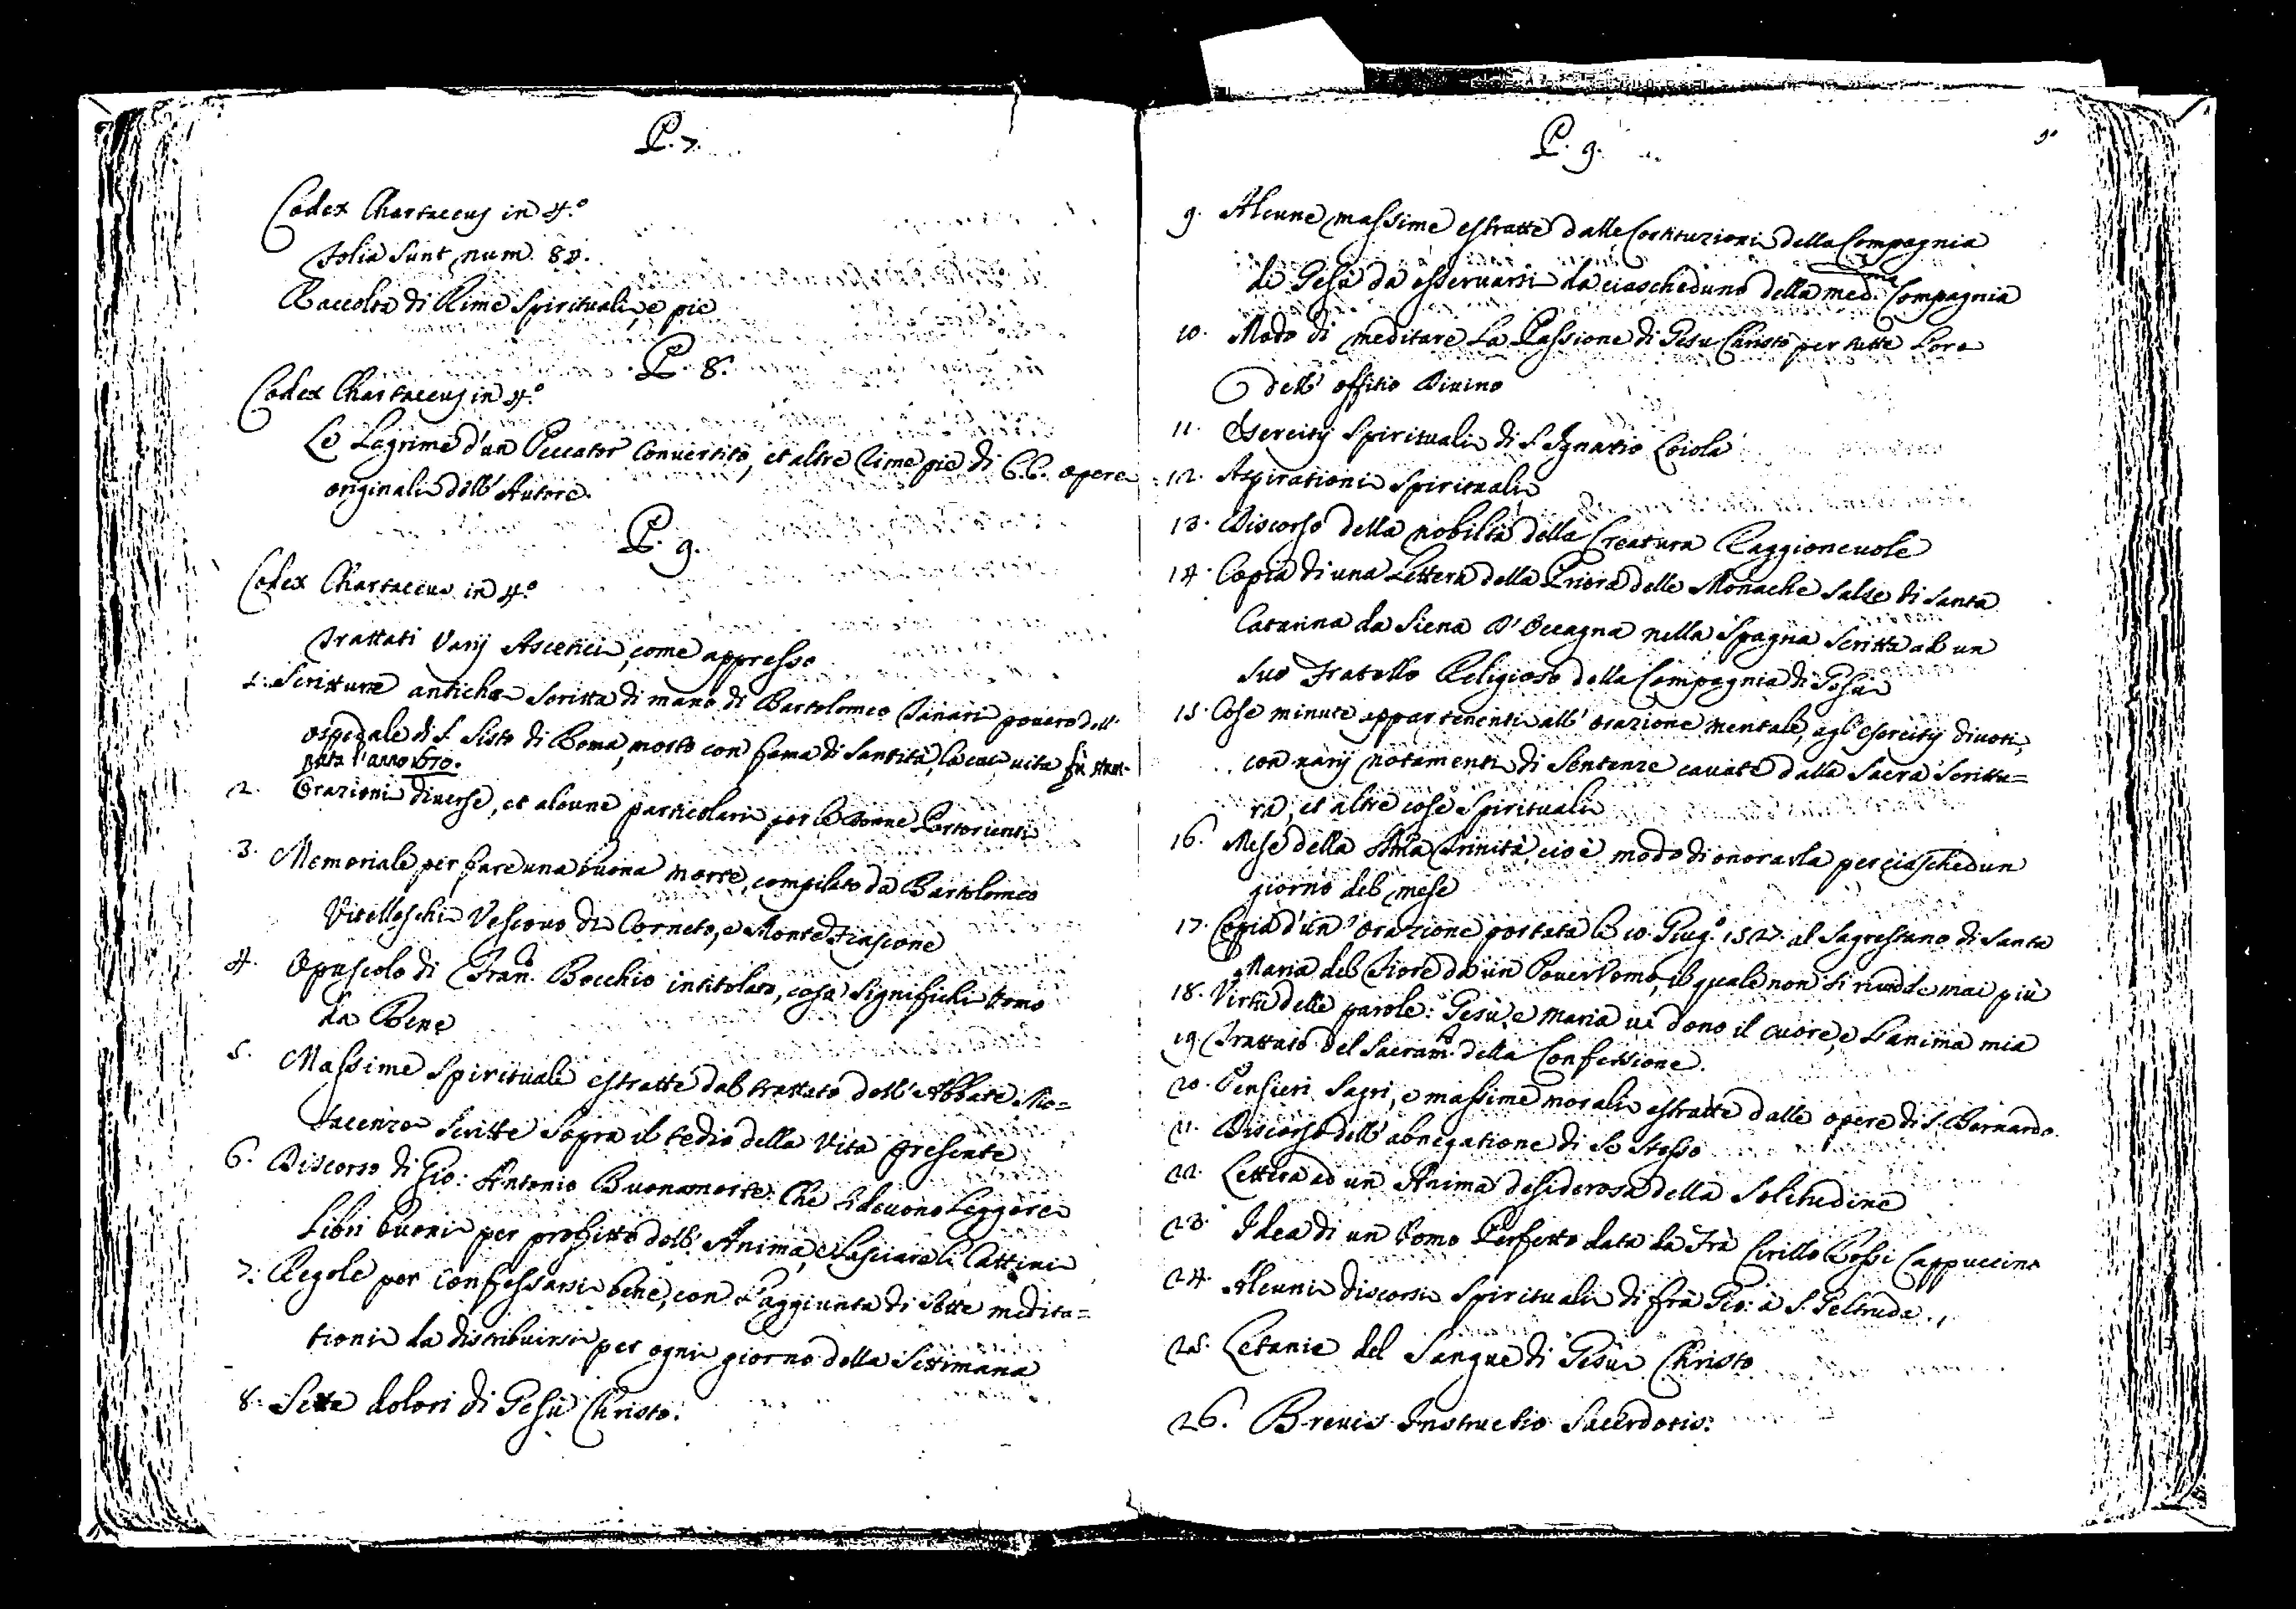 P. 7.
Codex Chartaceus in 4.º
Folia sunt num. 82.
Raccolta di Rime Spirituali, e pie
P. 8.
Codex Chartaceus in 4.º
Le Lagrime d'un Peccator Convertito, et altre Rime pie di C.C. opere
originali dell'Autore.
P. 9.
Codex Chartaceus in 4.º
Trattati Varij Ascetici, come appresso
1. Scritture antiche scritta di mano di Bartolomeo Janari povero dell'
ospedale di S. Sisto di Roma, morto con fama di Santità, la cui vita fu stam-
pata l'anno 1670.
2. Orazioni diverse, et alcune particolari per le Donne Partorienti
3. Memoriale per fare una buona morte, compilato da Bartolomeo
Vitelleschi Vescovo di Corneto, e Monte Fiascone
4. Opuscolo di Fran.co Bocchio intitolato, cosa significhi Uomo
da Bene
5. Massime Spirituale estratte dal trattato dell'Abbate
scritte sopra il tedio della Vita presente
6. Discorso di Gio: Antonio Buonamorte: Che si devono Leggere
Libri buoni per profitto dell'Anima, e Lasciare li Cattivi
7. Regole per Confessarsi bene, con l'aggiunta di Sette medita=
tioni da distribuirsi per ogni giorno della Settimana
8. Sette dolori di Gesù Christo.
P. 9.
9
9. Alcune massime estratte dalle Costituzioni della Compagnia
di Gesù da osservarsi da ciascheduno della med.ma Compagnia
10. Modo di meditare La Passione di Gesu Christo per tutte L'ore
dell'offitio Divino
11. Esercitij Spirituali di S. Ignatio Loiola
12. Aspirationi Spirituali
13. Discorso della nobiltà della Creatura Raggionevole
14. Copia di una Lettera della Priora delle Monache Salze di Santa
Catarina da Siena d'Occagna nella Spagna scritta ad un
suo Fratello Religioso della Compagnia di Gesù
15. Cose minute appartenenti all'orazione mentale, agl'esercitij divoti,
con varij notamenti di Sentenze cavate dalla Sacra Scrittu=
ra, et altre cose Spirituali
16. Mese della SSma Trinità, cioè modo di onorarla per ciaschedun
giorno del mese
17. Copia d'un'orazione portata li 10. Giug.º 1527. al Sagrestano di Santa
Maria del Fiore da un Pover Uomo, il quale non si rividde mai più
18. Virtù delle parole: Gesù, e Maria vi dono il cuore, e l'anima mia
19 Trattato del Sacram.to della Confessione.
20. Pensieri Sagri, e massime morali estratte dalle opere di S. Bernardo
21. Discorso dell'abnegatione di se Stesso
22. Lettera ad un Anima desiderosa della Solitudine
23. Idea di un Uomo Perfetto data da Frà Cirillo Rossi Cappuccino
24. Alcuni discorsi Spirituali di frà Gio: à S. Geltrude.
25. Letanie del Sangue di Gesù Christo
26. Brevis Instructio Sacerdotis: